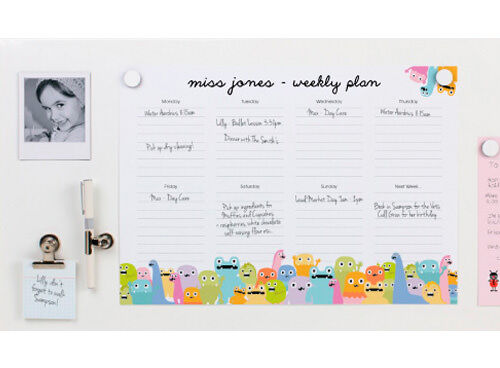 miss jones - weekly plan
Monday
Tuesday
Wednesday
Thursday
Water Aerobics 11.15am
Max - Day Care
Water Aerobics 11.15am
Lilly - Ballet Lesson 3.30pm
Dinner with The Smith's
Pick up dry cleaning!
Friday
Saturday
Sunday
Next Week...
Max - Day Care
Pick up ingredients for
Muffins and Cupcakes
- raspberries, white chocolate
self-raising flour etc...
Local Market Day 9am - 1pm
Book in Sampson for the Vets
Call Gran for her birthday
Lilly don't
forget to walk
Sampson!
To